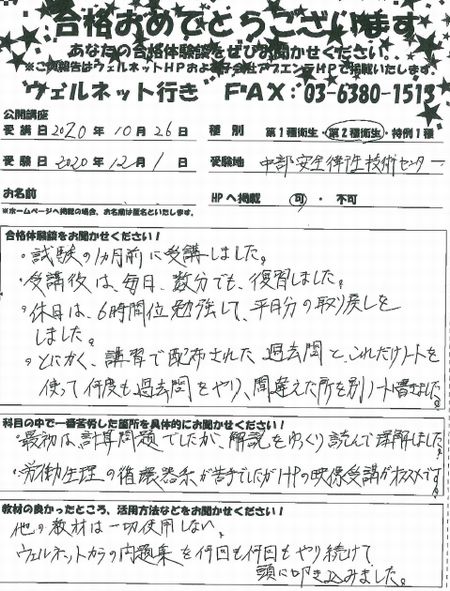 合格おめでとうございます
あなたの合格体験談をぜひお聞かせください。
※ご報告はウェルネットHPおよび子会社アプエンテHPで掲載いたします。
ウェルネット行き FAX:03-6380-1513
公開講座
受講日 2020 年 10 月 26 日 種別 第1種衛生・第2種衛生・特例1種
受験日 2020 年 12 月 1 日 受験地 中部安全衛生技術センター
お名前 HPへ掲載 可・不可
※ホームページへ掲載の場合、お名前は匿名といたします。
合格体験談をお聞かせください!
・試験の1カ月前に受講しました。
・受講後は、毎日、数分でも、復習しました。
・休日は、6時間位勉強して、平日分の取り戻しを
しました。
・とにかく、講習で配布された、過去問と、これだけノートを
使って何度も過去問をやり、間違えた所を別ノートに書きました。
科目の中で一番苦労した箇所を具体的にお聞かせください!
・最初は、計算問題でしたが、解説をゆっくり読んで理解しました。
・労働生理の循環器系が苦手でしたがHPの映像受講がオススメです。
教材の良かったところ、活用方法などをお聞かせください!
他の教材は一切使用しない。
ウェルネットカラの問題集を何日も何日もやり続けて
頭に叩き込みました。